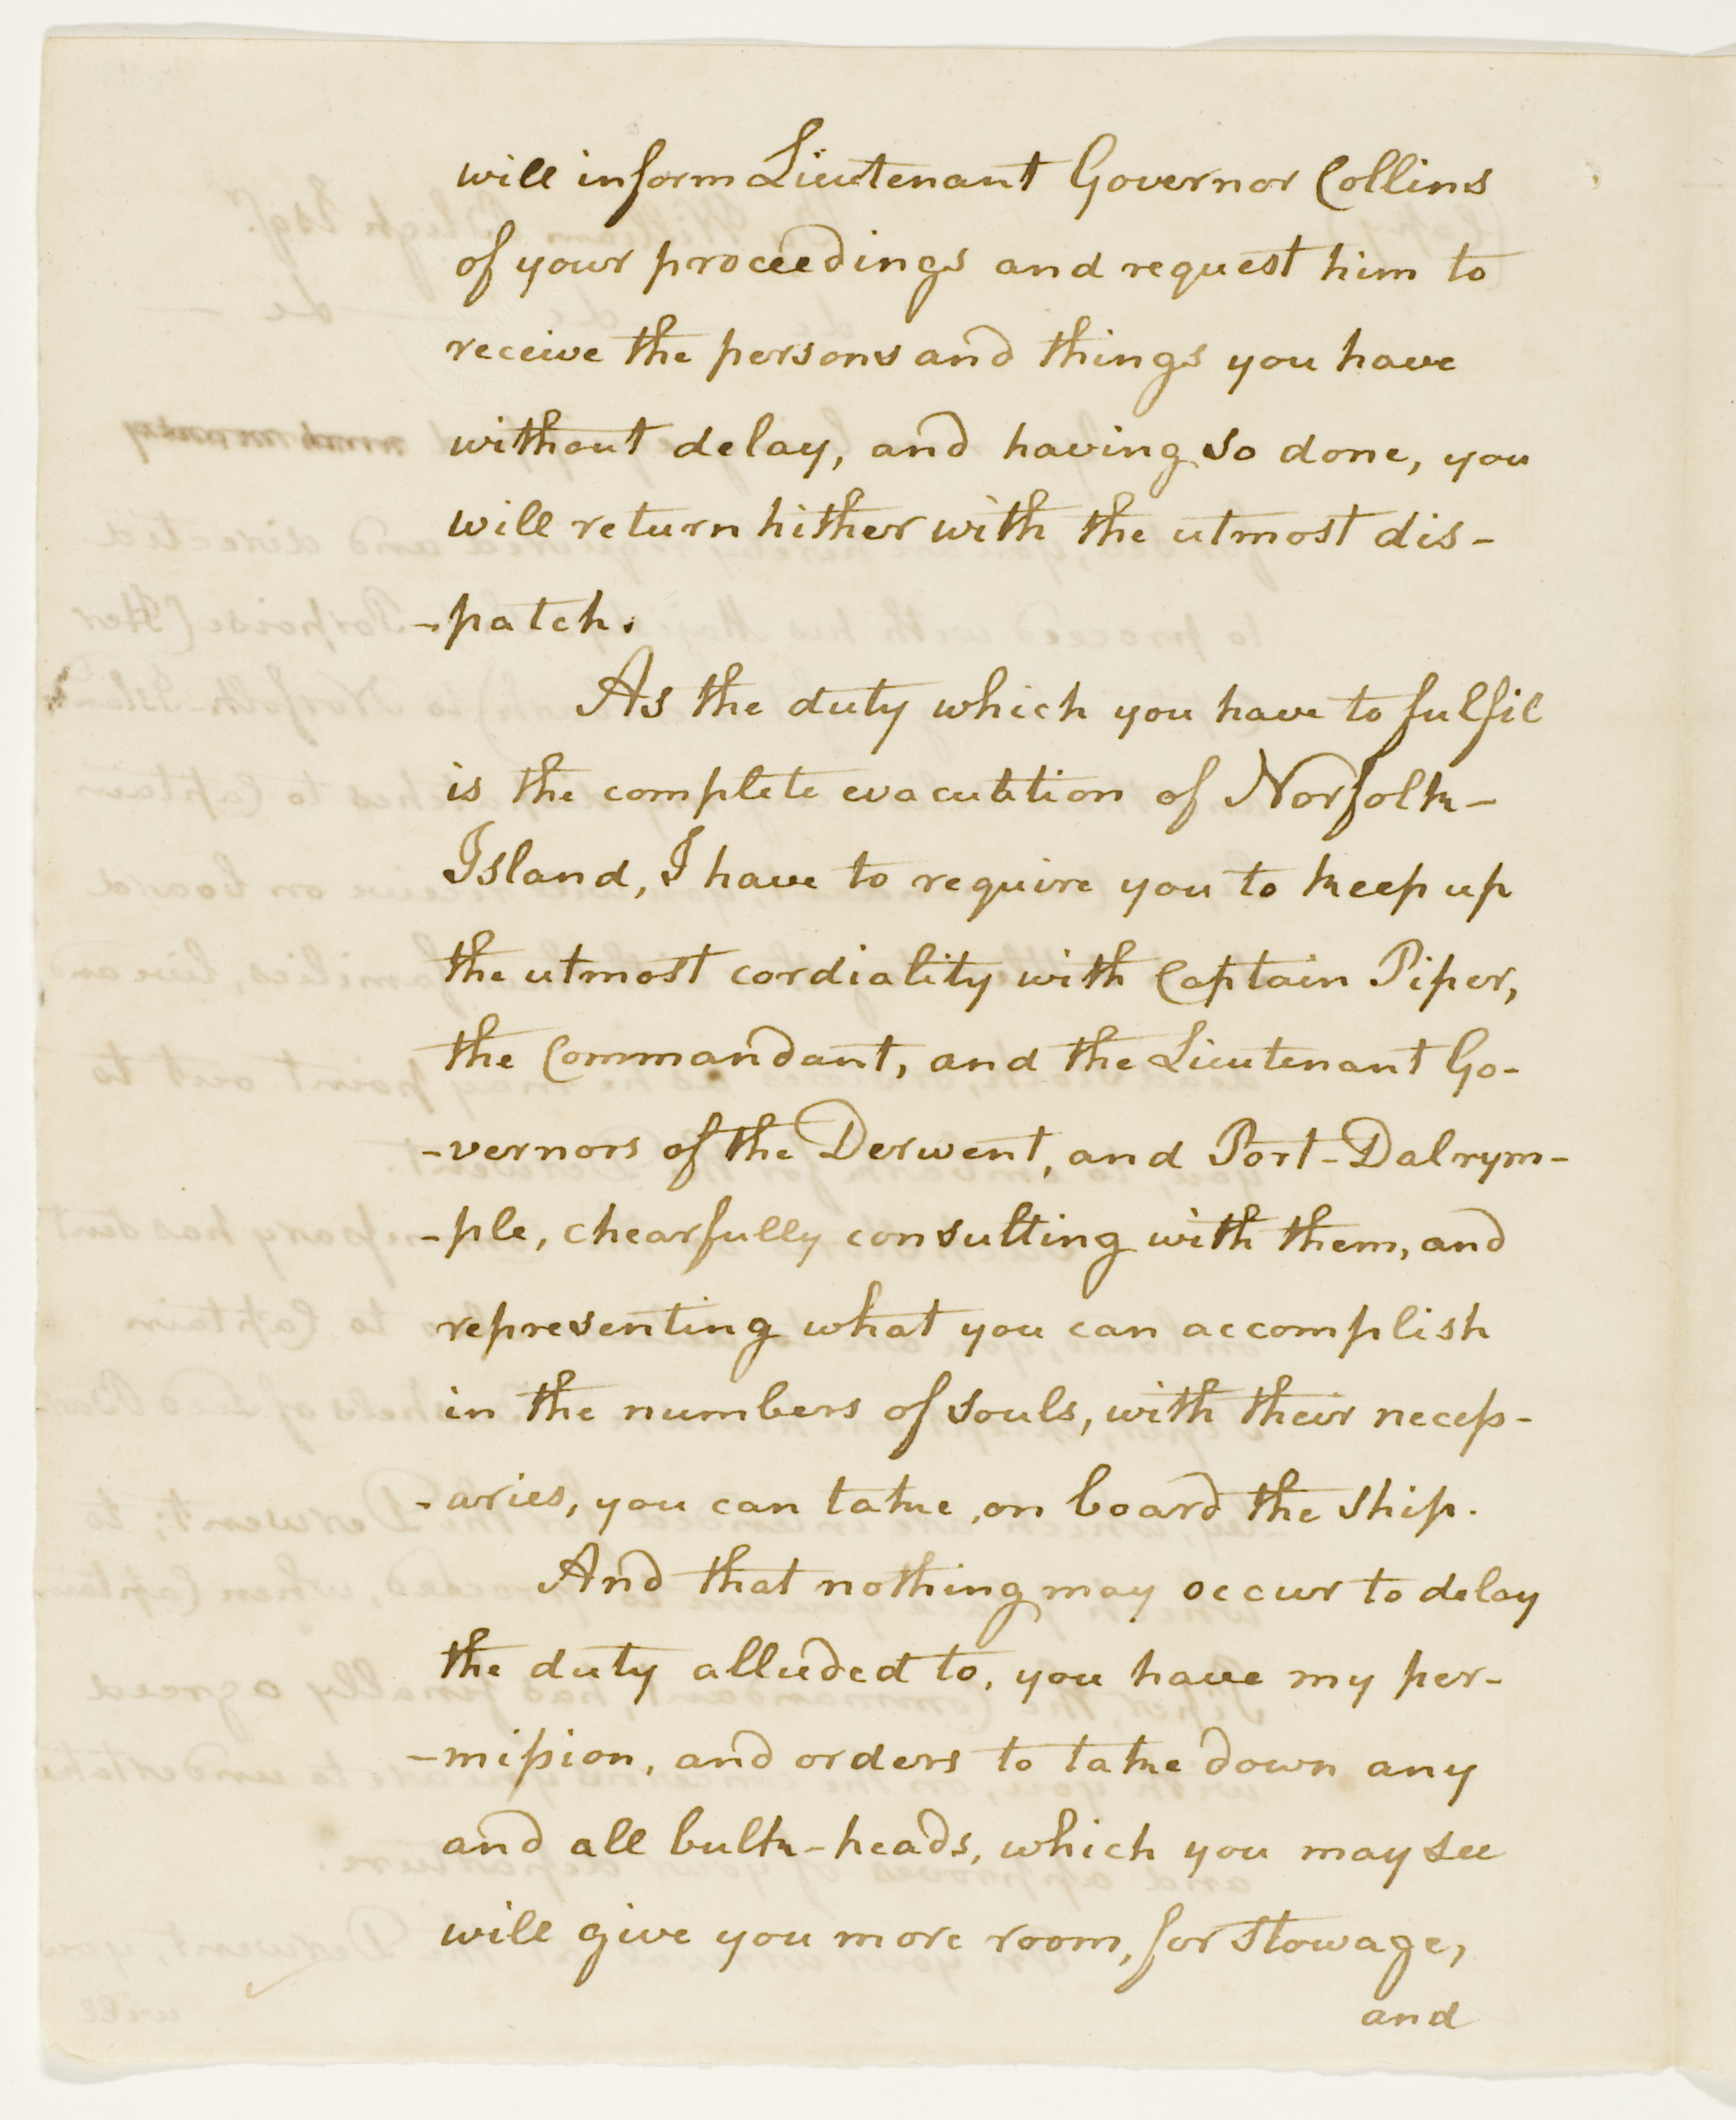 will inform Lieutenant Governor Collins
of your proceedings and request him to
receive the persons and things you have
without delay, and having so done, you
will return hither with the utmost dis-
-patch.
As the duty which you have to fulfil
is the complete evacuation of Norfolk-
Island, I have to require you to keep up
the utmost cordiality with Captain Piper,
the Commandant, and the Lieutenant Go-
-vernors of the Derwent, and Port-Dalrym-
-ple, chearfully consulting with them, and
representing what you can accomplish
in the numbers of souls, with their necess-
-aries, you can take, on board the ship.
And that nothing may occur to delay
the duty alluded to, you have my per-
-mission, and orders to take down any
and all bulk-heads, which you may see
will give you more room, for stowage,
and